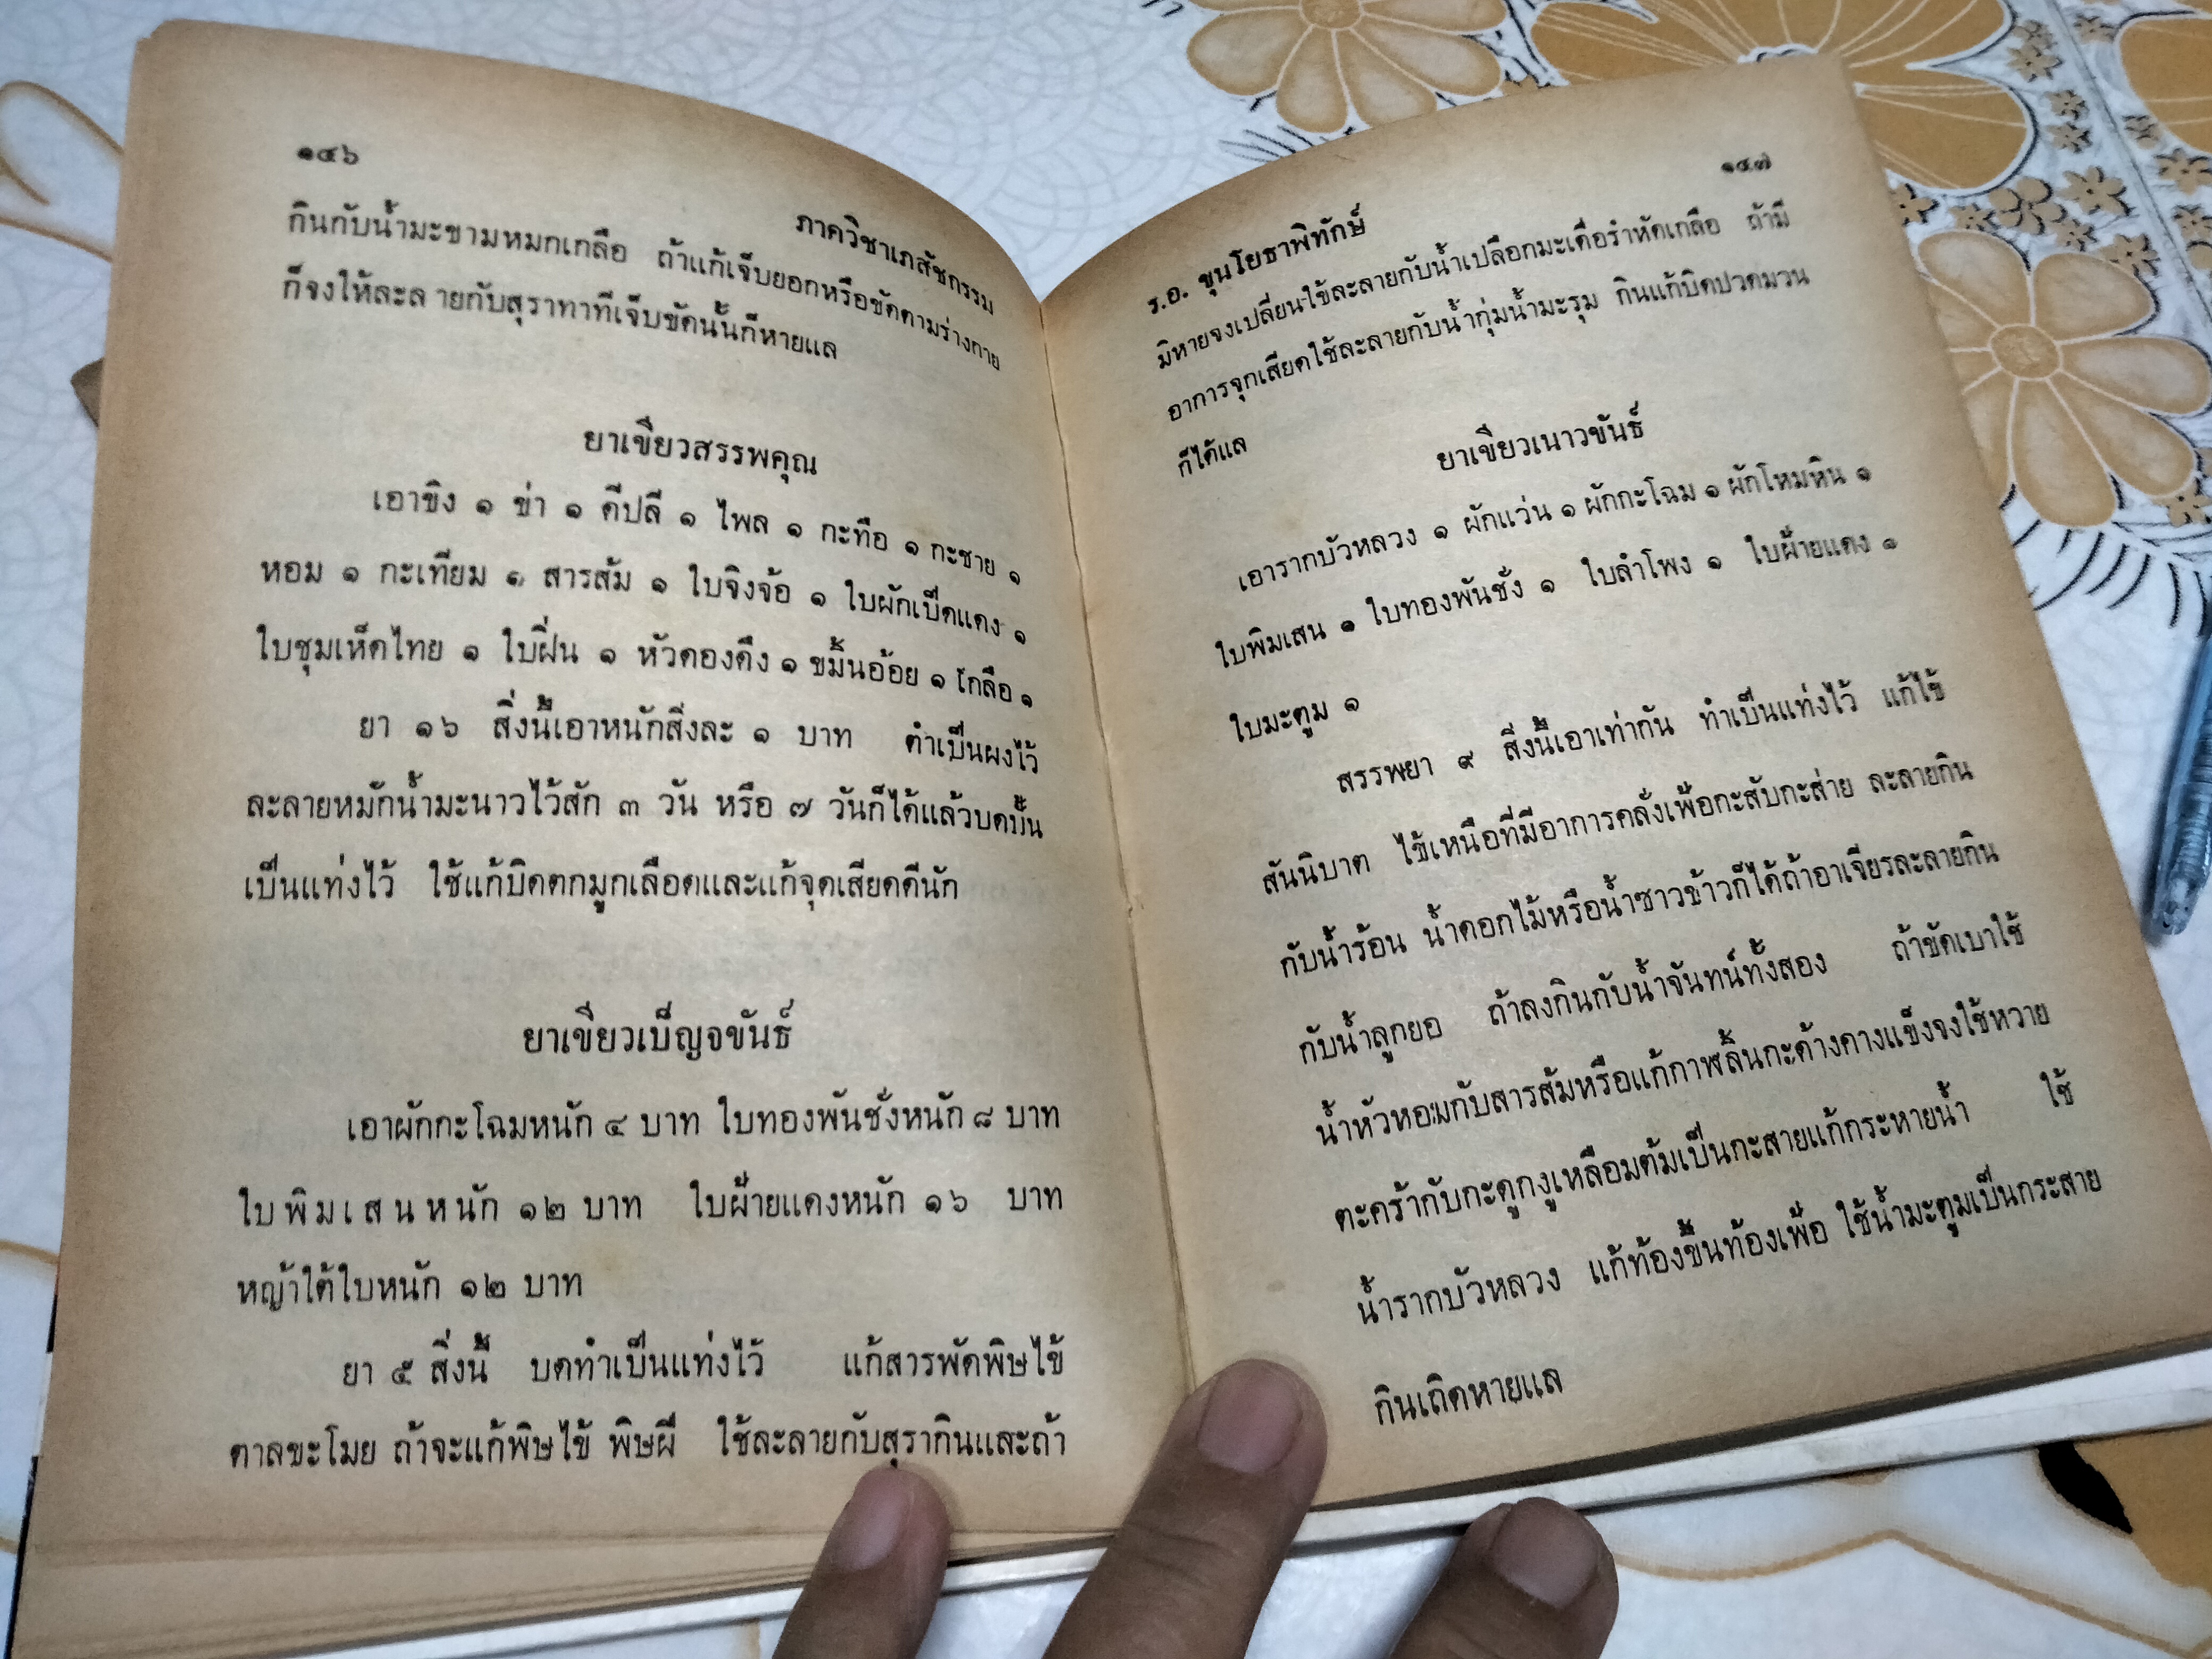 ๑๔๖
ภาควิชาเภสัชกรรม
กินกับน้ำมะขามหมกเกลือ ถ้าแก้เจ็บยอกหรือขัดตามร่างกาย
ก็จงให้ละลายกับสุราทาที่เจ็บขัดนั้นก็หายแล
ยาเขียวสรรพคุณ
เอาขิง ๑ ข่า ๑ ดีปลี ๑ ไพล ๑ กะทือ ๑ กะชาย ๑
หอม ๑ กะเทียม ๑ สารส้ม ๑ ใบจิงจ้อ ๑ ใบผักเป็ดแดง ๑
ใบชุมเห็ดไทย ๑ ใบฝิ่น ๑ หัวดองดึง ๑ ขมิ้นอ้อย ๑ เกลือ ๑
ยา ๑๖ สิ่งนี้เอาหนักสิ่งละ ๑ บาท ตำเป็นผงไว้
ละลายหมักน้ำมะนาวไว้สัก ๓ วัน หรือ ๗ วันก็ได้แล้วบดปั้น
เป็นแท่งไว้ ใช้แก้บิดตกมูกเลือดและแก้จุดเสียดดีนัก
ยาเขียวเบ็ญจขันธ์
เอาผักกะโฉมหนัก ๔ บาท ใบทองพันชั่งหนัก ๘ บาท
ใบพิมเสนหนัก ๑๒ บาท ใบฝ้ายแดงหนัก ๑๖ บาท
หญ้าใต้ใบหนัก ๑๒ บาท
ยา ๕ สิ่งนี้ บดทำเป็นแท่งไว้ แก้สารพัดพิษไข้
ตาลขะโมย ถ้าจะแก้พิษไข้ พิษผี ใช้ละลายกับสุรากินและถ้า
๑๔๗
ร.อ. ขุนโยธาพิทักษ์
มิหายจงเปลี่ยนใช้ละลายกับน้ำเปลือกมะเดื่อรำหัดเกลือ ถ้ามี
อาการจุกเสียดใช้ละลายกับน้ำกุ่มน้ำมะรุม กินแก้บิดปวดมวน
ก็ได้แล
ยาเขียวเนาวขันธ์
เอารากบัวหลวง ๑ ผักแว่น ๑ ผักกะโฉม ๑ ผักโหมหิน ๑
ใบพิมเสน ๑ ใบทองพันชั่ง ๑ ใบลำโพง ๑ ใบฝ้ายแดง ๑
ใบมะตูม ๑
สรรพยา ๙ สิ่งนี้เอาเท่ากัน ทำเป็นแท่งไว้ แก้ไข้
สันนิบาต ไข้เหนือที่มีอาการคลั่งเพ้อกะสับกะส่าย ละลายกิน
กับน้ำร้อน น้ำดอกไม้หรือน้ำซาวข้าวก็ได้ถ้าอาเจียรละลายกิน
กับน้ำลูกยอ ถ้าลงกินกับน้ำจันทน์ทั้งสอง ถ้าขัดเบาใช้
น้ำหัวหอมกับสารส้มหรือแก้กาฬลิ้นกะด้างคางแข็งจงใช้หวาย
ตะคร้ากับกะดูกงูเหลือมต้มเป็นกะสายแก้กระหายน้ำ ใช้
น้ำรากบัวหลวง แก้ท้องขึ้นท้องเฟ้อ ใช้น้ำมะตูมเป็นกระสาย
กินเถิดหายแล